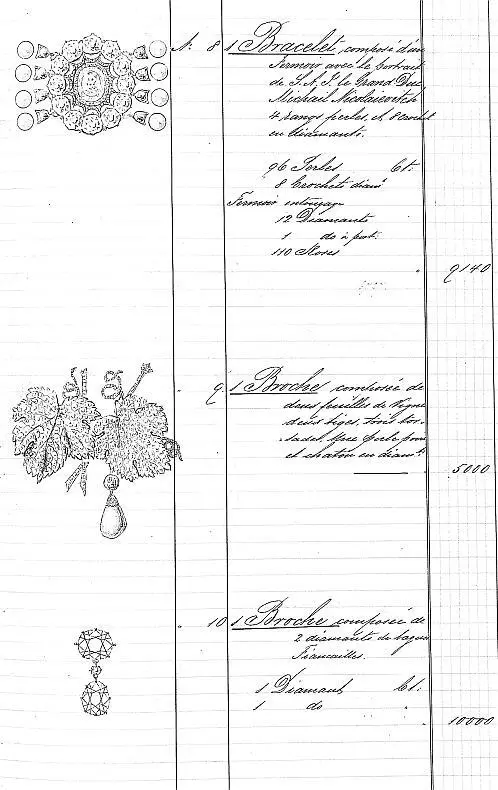 N: 8 1 Bracelet, composé d'un
Fermoir avec le portrait
de S. A. I. le Grand Duc
Michail Nicolaievitch
4 rangs perles, et 8 crochets
en diamants.
96 Perles Ct:
8 Crochets diamts
Fermoir entourage
12 Diamants
1 do à port.
110 Roses
" 9140
" 9. 1 Broche composée de
deux feuilles de Vigne
deux tiges, trois tor-
sades, perle poire
et chaton en diamts
" 5000
" 10 1 Broche composée de
2 diamants de bague
Fiancailles.
1 Diamant Ct:
1 do "
" 10000